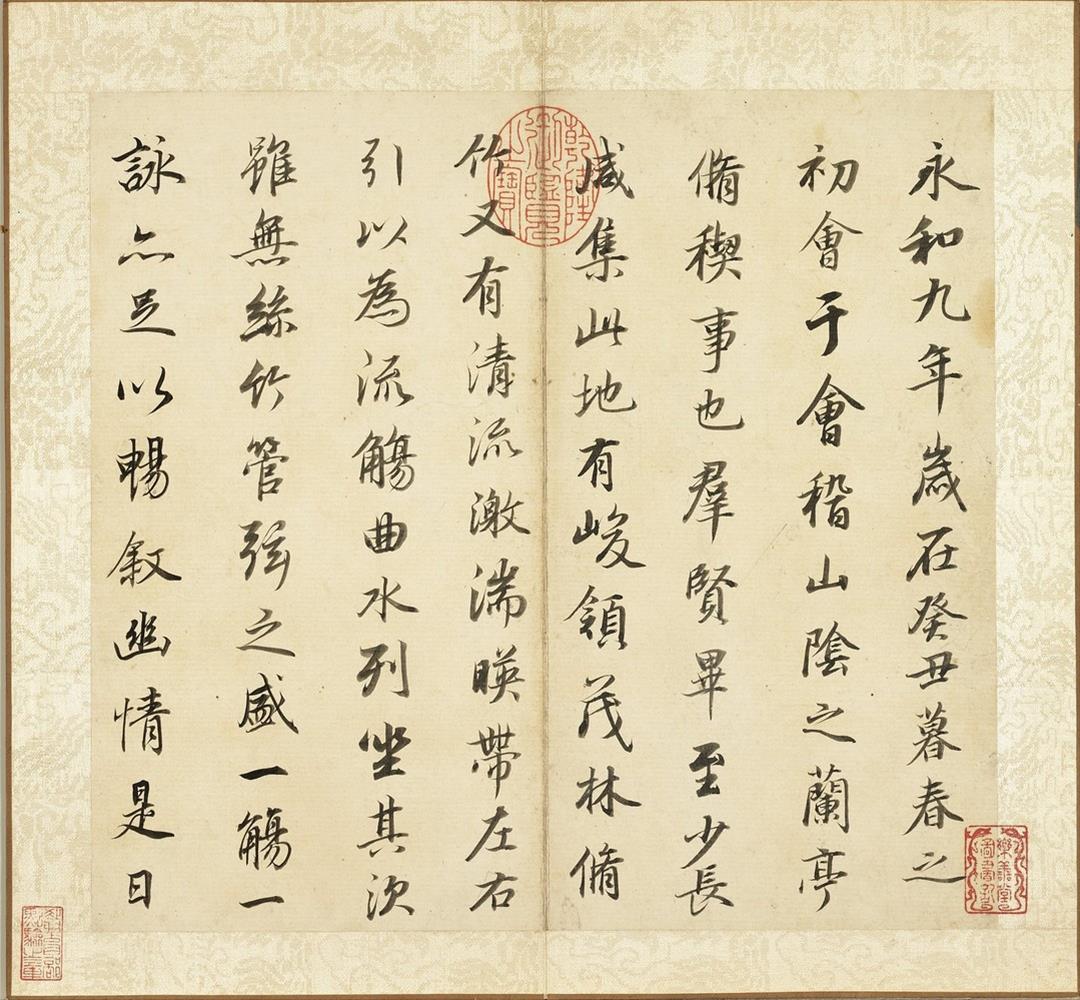 永和九年歲在癸丑暮春之
初會于會稽山陰之蘭亭
脩稧事也羣賢畢至少長
咸集此地有峻領茂林脩
竹又有清流激湍暎帶左右
引以為流觴曲水列坐其次
雖無絲竹管弦之盛一觴一
詠亦足以暢叙幽情是日
乾隆御覽之寶
樂善堂圖書記